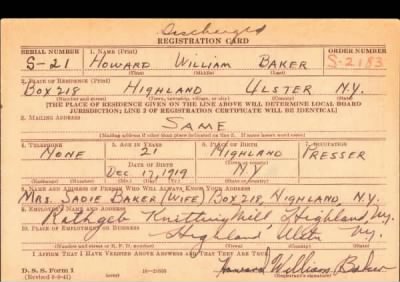 Discharged
REGISTRATION CARD
SERIAL NUMBER 1. NAME (Print) ORDER NUMBER
S-21 HOWARD WILLIAM BAKER S-2183
(First) (Middle) (Last)
2. PLACE OF RESIDENCE (Print)
BOX 218 HIGHLAND ULSTER N.Y.
(Number and street) (Town, township, village, or city) (County) (State)
[THE PLACE OF RESIDENCE GIVEN ON THE LINE ABOVE WILL DETERMINE LOCAL BOARD
JURISDICTION; LINE 2 OF REGISTRATION CERTIFICATE WILL BE IDENTICAL]
3. MAILING ADDRESS
SAME
[Mailing address if other than place indicated on line 2. If same insert word same]
4. TELEPHONE 5. AGE IN YEARS 6. PLACE OF BIRTH 7. OCCUPATION
NONE 21 HIGHLAND PRESSER
DATE OF BIRTH
DEC 17, 1919 N.Y
(Mo.) (Day) (Yr.) (State or country)
8. NAME AND ADDRESS OF PERSON WHO WILL ALWAYS KNOW YOUR ADDRESS
MRS. SADIE BAKER (WIFE) BOX 218, HIGHLAND, N.Y.
9. EMPLOYER'S NAME AND ADDRESS
Rathgeb Knitting Mill Highland, NY.
10. PLACE OF EMPLOYMENT OR BUSINESS
Highland Ulster NY.
(Number and street or R. F. D. number) (Town) (County) (State)
I AFFIRM THAT I HAVE VERIFIED ABOVE ANSWERS AND THAT THEY ARE TRUE.
D. S. S. Form 1 Howard William Baker
(Revised 6-9-41) (Registrant's signature)